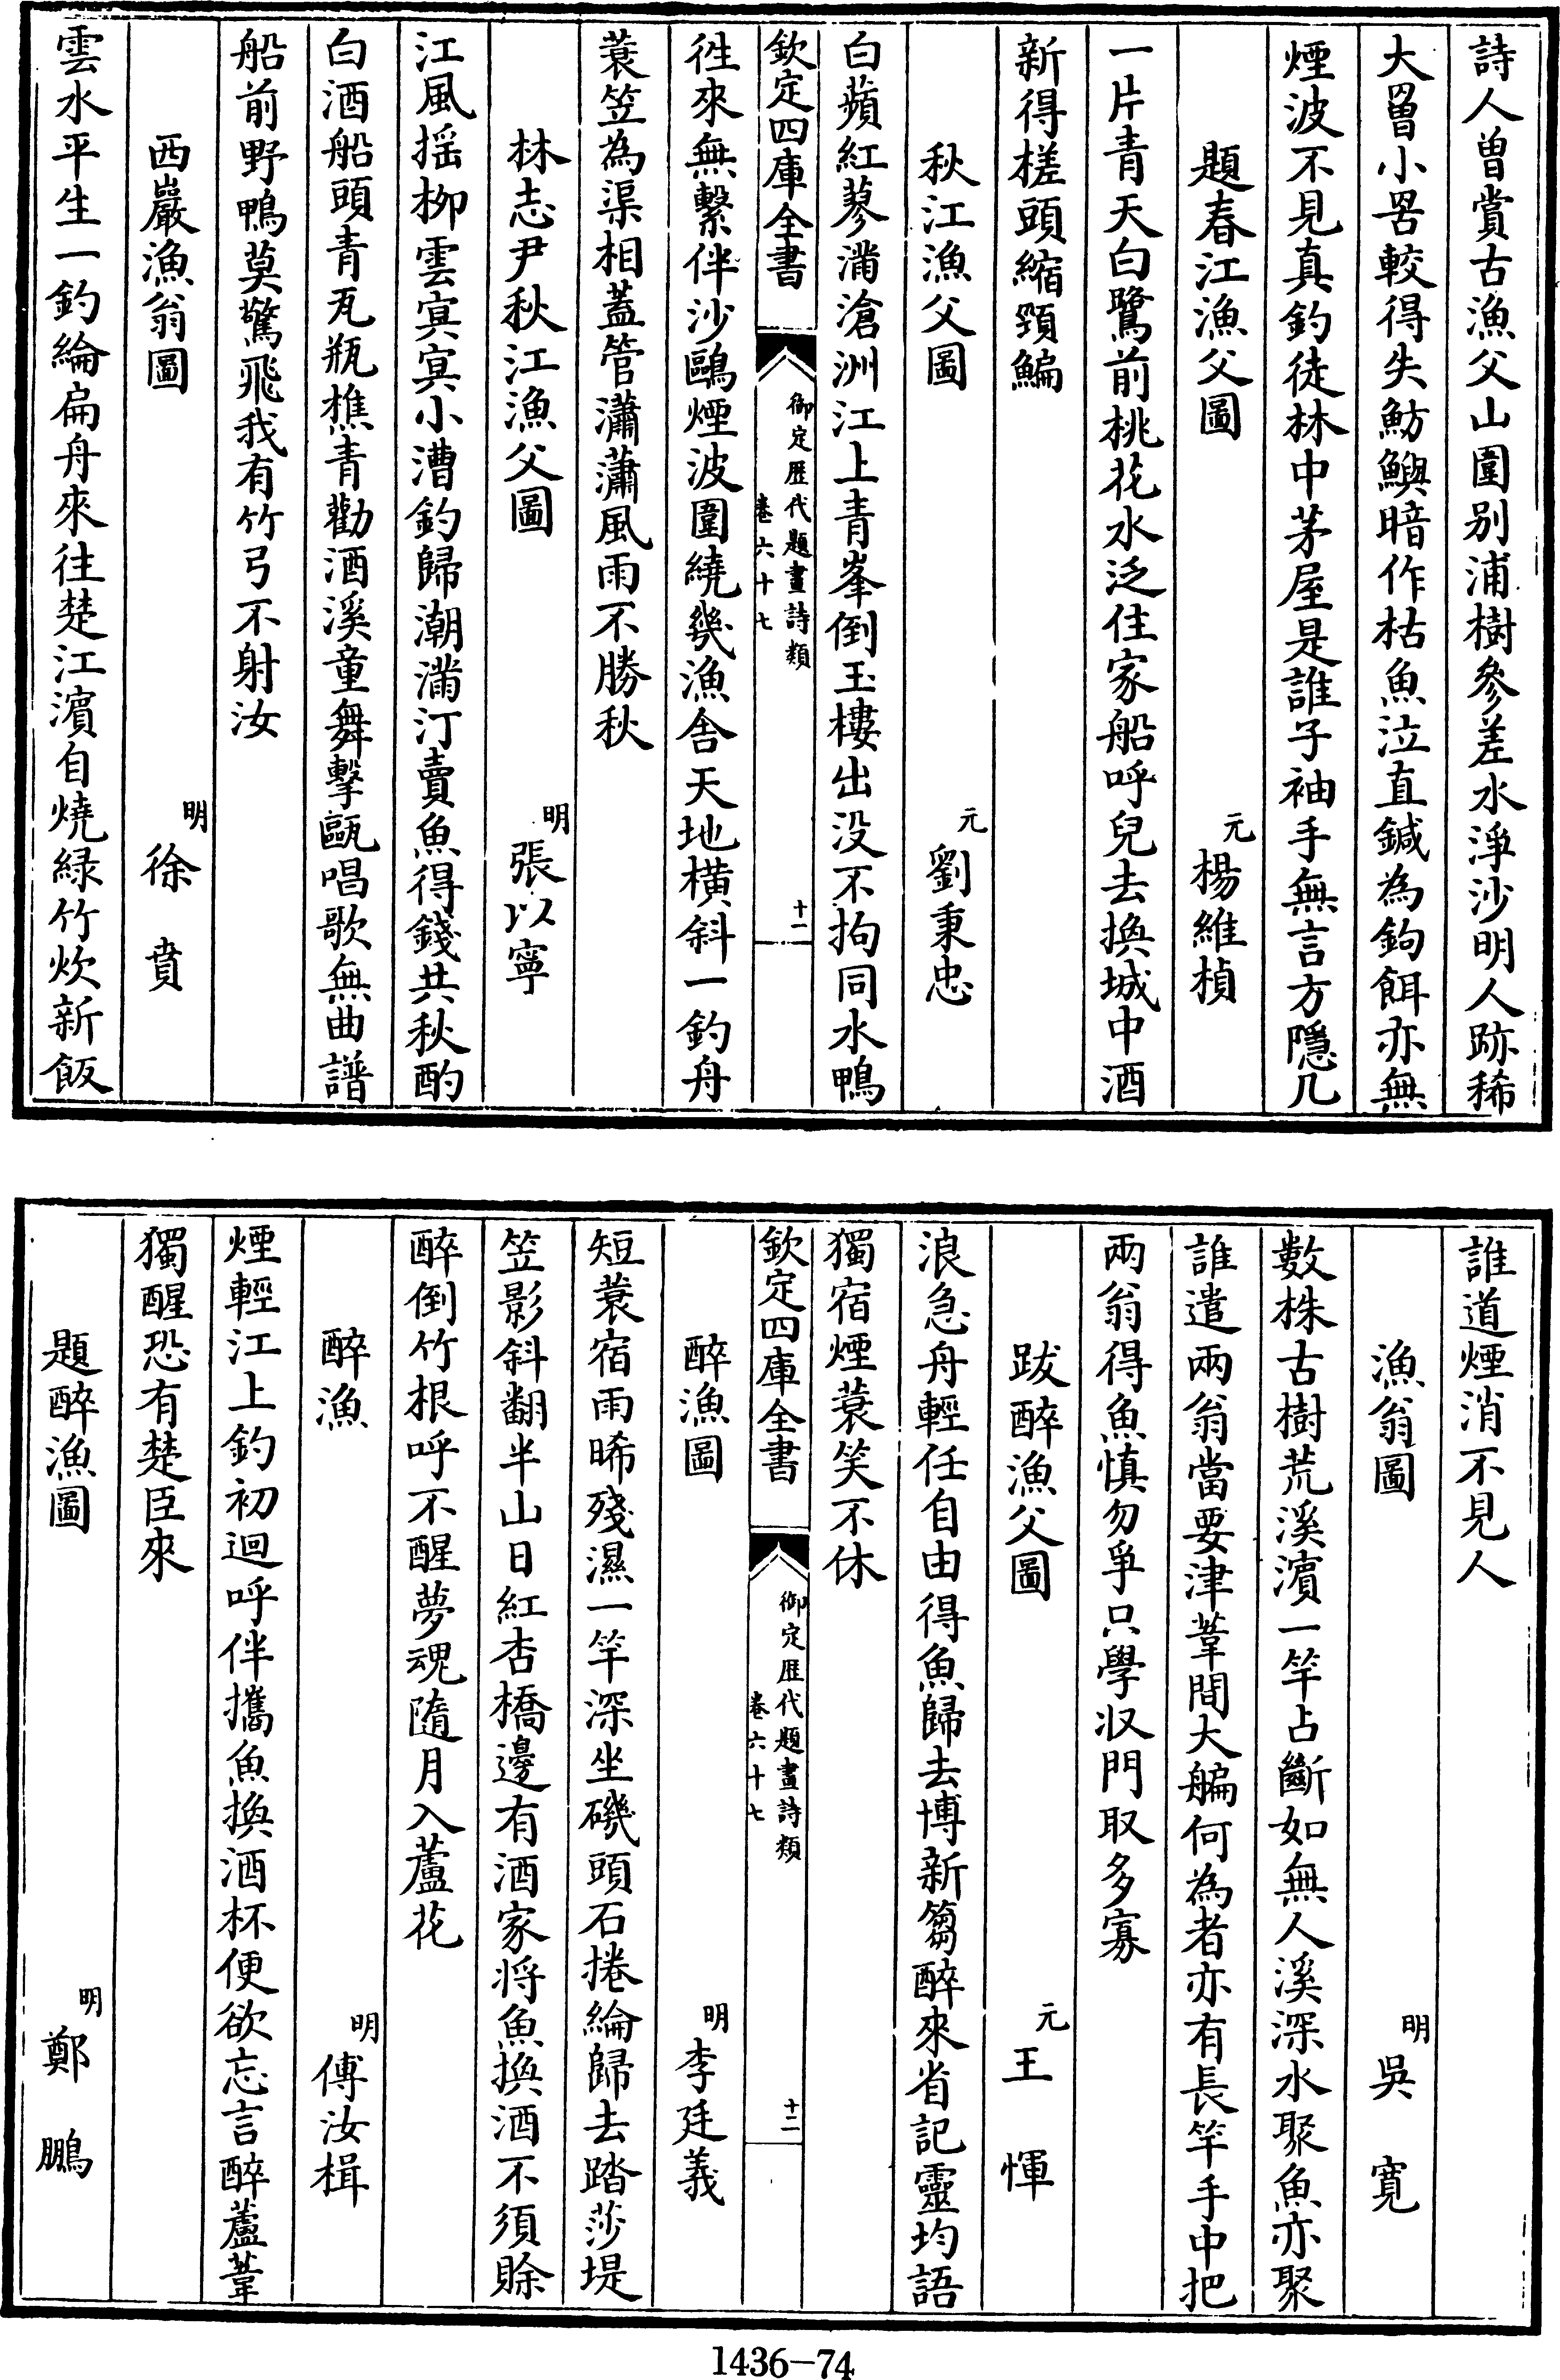 詩人曾賞古漁父山圍别浦樹參差水淨沙明人跡稀
大罾小罟較得失魴鱮暗作枯魚泣直鍼為鉤餌亦無
煙波不見真釣徒林中茅屋是誰子袖手無言方隱几
題春江漁父圖
元
楊維楨
一片青天白鷺前桃花水泛住家船呼兒去換城中酒
新得槎頭縮頸鯿
秋江漁父圖
元
劉秉忠
白蘋紅蓼滿滄洲江上青峯倒玉樓出没不拘同水鴨
欽定四庫全書
御定歴代題畫詩類
卷六十七
十一
徃來無繫伴沙鷗煙波圍繞幾漁舍天地橫斜一釣舟
蓑笠為渠相蓋管瀟瀟風雨不勝秋
林志尹秋江漁父圖
明
張以寧
江風揺柳雲㝠㝠小漕釣歸潮滿汀賣魚得錢共秋酌
白酒船頭青瓦瓶樵青勸酒溪童舞擊甌唱歌無曲譜
船前野鴨莫驚飛我有竹弓不射汝
西巖漁翁圖
明
徐賁
雲水平生一釣綸扁舟來往楚江濵自燒緑竹炊新飯
誰道煙消不見人
漁翁圖
明
吳寛
數株古樹荒溪濵一竿占斷如無人溪深水聚魚亦聚
誰遣兩翁當要津葦間大艑何為者亦有長竿手中把
兩翁得魚慎勿爭只學汊門取多寡
跋醉漁父圖
元
王惲
浪急舟輕任自由得魚歸去博新篘醉來省記靈均語
獨宿煙蓑笑不休
欽定四庫全書
御定歴代題畫詩類
卷六十七
十二
醉漁圖
明
李廷義
短蓑宿雨晞殘濕一竿深坐磯頭石捲綸歸去踏莎堤
笠影斜翻半山日紅杏橋邊有酒家将魚換酒不須賒
醉倒竹根呼不醒夢魂隨月入蘆花
醉漁
明
傅汝楫
煙輕江上釣初迴呼伴攜魚換酒杯便欲忘言醉蘆葦
獨醒恐有楚臣來
題醉漁圖
明
鄭鵬
1436-74